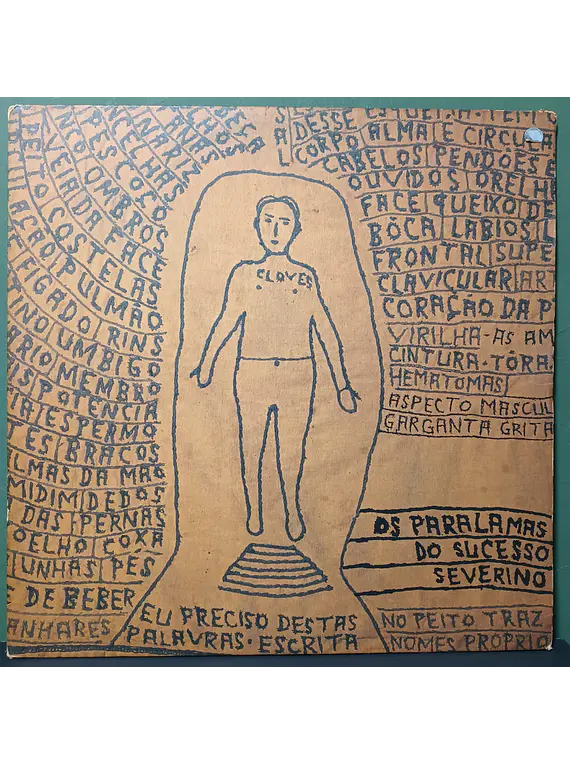 DESSE
CORPO ALMA E CIRCULA
CABELOS PENDÕES E
OUVIDOS ORELH
FACE QUEIXO DE
BÔCA LABIOS L
FRONTAL SUPE
CLAVICULAR AR
CORAÇÃO DA P
VIRILHA-AS AM
CINTURA-TÓRA
HEMATOMAS
ASPECTO MASCUL
GARGANTA GRITA
PESCOÇO
OMBROS
VEIA DA FACE
PEITO COSTELAS
PULMÃO
FIGADO RINS
TINO UMBIGO
RIO MEMBRO
IS POTENCIA
IA ESPERMO
TES BRAÇOS
LMAS DA MÃO
MIDIM DEDOS
DAS PERNAS
OELHO COXA
UNHAS PÉS
E DE BEBER
ANHARES
CLOVES
OS PARALAMAS
DO SUCESSO
SEVERINO
EU PRECISO DESTAS
PALAVRAS. ESCRITA
NO PEITO TRAZ
NOMES PRÓPRIO